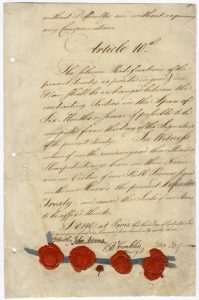 without Difficulty and without requiring
any Compensation.
Article 10th.
The solemn Ratifications of the
present Treaty expedited in good &
Form shall be exchanged between the
contracting Parties in the Space of
Six Months or sooner if possible to be
computed from the Day of the Signature
of the present Treaty. In Witness
whereof we the undersigned their Ministers
Plenipotentiary have in their Name
and in Virtue of our Full Powers signed
with our Hands the present Definitive
Treaty, and caused the Seals of our Arms
to be affix'd thereto.
Done at Paris, this third Day of September
John Adams
B Franklin
John Jay